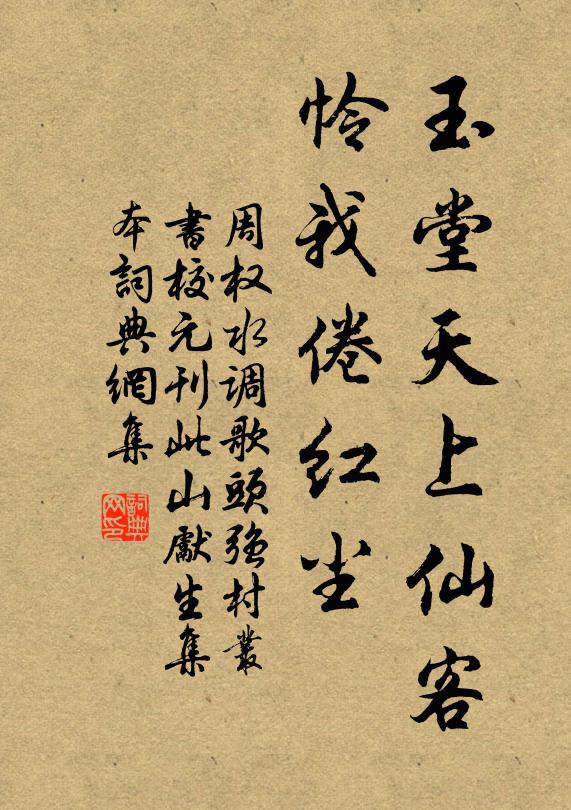 玉堂天上仙客
怜我倦红尘
周权水调歌头强村叢
書校元刊此山獻生集
本詞典網集
詞典
网印